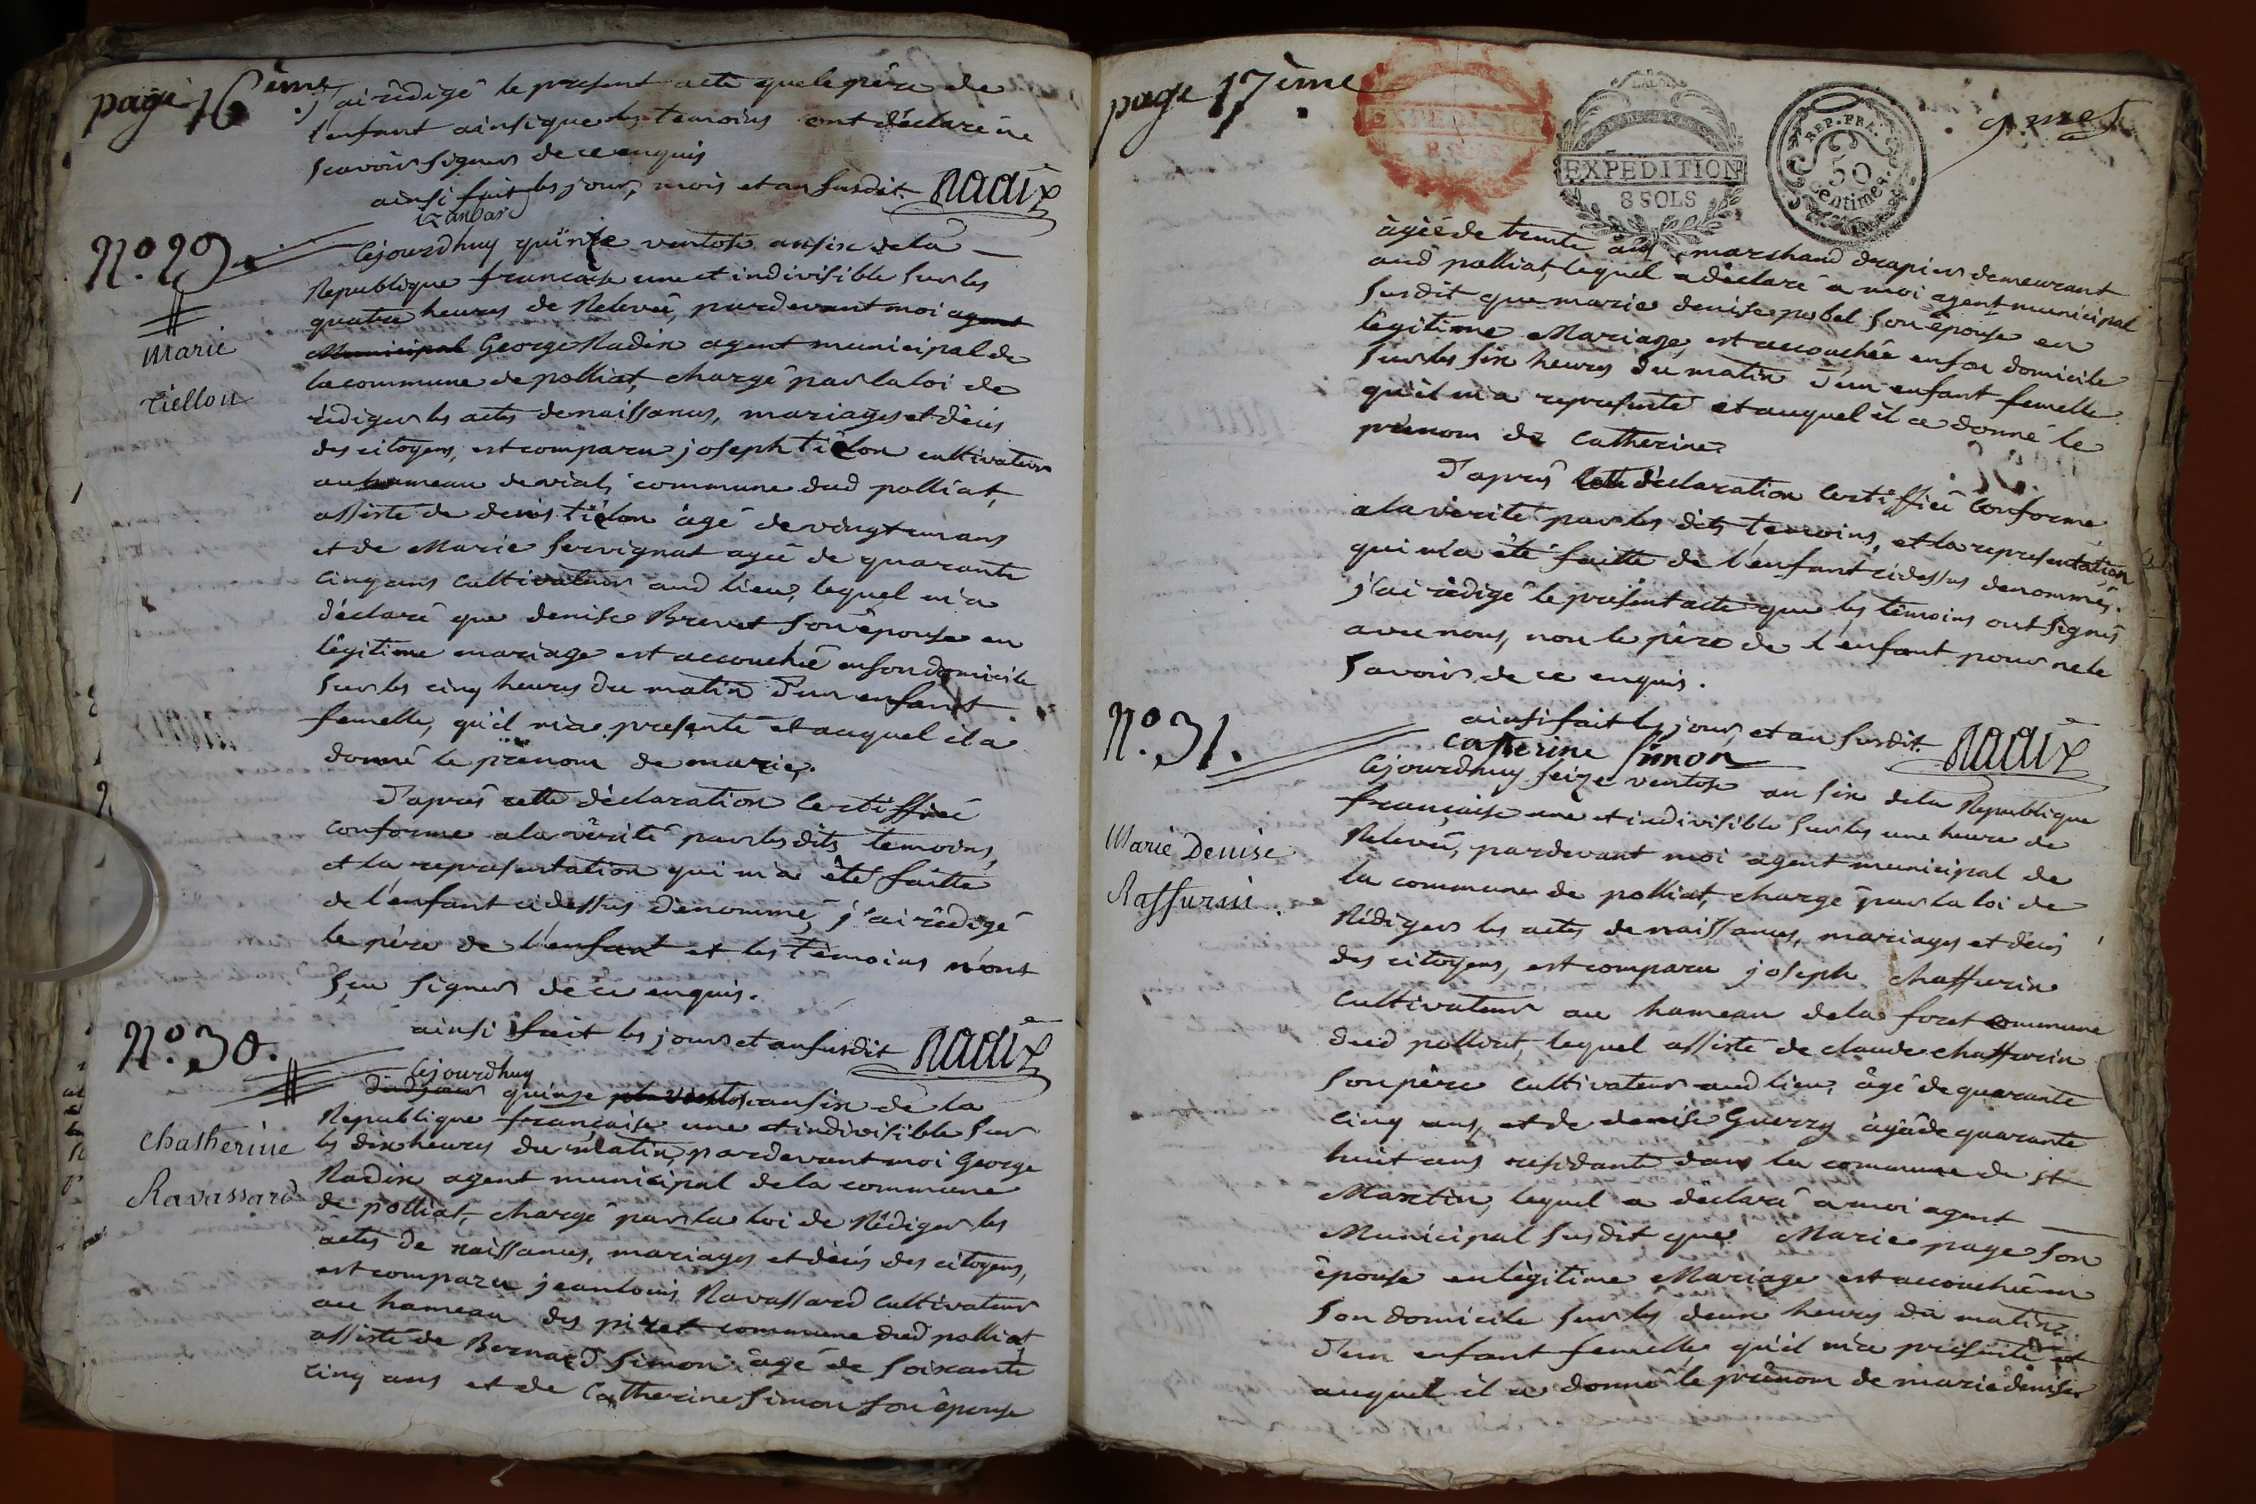 page 16ème
j'ai rêdigé le present acte que le père de
l'enfant ainsi que les temoins ont déclaré ne
scavoir signer de ce enquis
ainsi fait les jour, mois et an susdit. Nadix
N° 29.
Marie
Tiellon
Cejourdhuy quinze ventose an six de la
Republique francaise une et indivisible sur les
quatre heures de Relevée, pardevant moi agent
Municipal George Nadix agent municipal de
la commune de polliat, chargé par la loi de
rêdiger les actes de naissances, mariages et décés
des citoyens, est comparu joseph tiélon cultivateur
au hameau de vial, commune dud polliat,
assisté de denis tiélon âgé de vingt un ans
et de Marie servignat agée de quarante
cinq ans cultivateurs aud lieu, lequel m'a
déclaré que denise Brevet son épouse en
légitime mariage est accouchée en son domicile
sur les cinq heures du matin d'un enfant
femelle, qu'il m'a presenté et auquel il a
donné le prénom de marie.
d'aprés cette déclaration certiffiée
conforme a la vérité par les dits temoins,
et la representation qui m'a été faitte
de l'enfant cidessus dénommé, j'ai rêdigé
le père de l'enfant et les témoins n'ont
sçu signer de ce enquis.
ainsi fait les jours et an susdit Nadix
N° 30.
Chatherine
Ravassard
Cejourdhuy
dudjour quinze ventos an six de la
Republique française une et indivisible sur
les dix heures du matin, pardevant moi George
Nadix agent municipal de la commune
de polliat, chargé par la loi de Rédiger les
actes de naissances, mariages et décés des citoyens,
est comparu jean louis Ravassard cultivateur
au hameau des piret commune dud polliat,
assisté de Bernard Simon âgé de soixante
cinq ans et de Catherine Simon son épouse
page 17ème
EXPEDITION
8 SOLS
EXPEDITION
8 SOLS
REP. FRA.
50
Centimes
âgée de trente ans marchand drapier demeurant
aud polliat, lequel a déclaré a moi agent municipal
susdit que marie denise pobel son épouse en
légitime Mariage, est accouchée en son domicile
sur les six heures du matin d'un enfant femelle
qu'il m'a representé et auquel il a donné le
prénom de Catherine
d'aprés cette déclaration certiffiée conforme
a la vérité par les dits temoins, et la representation
qui m'a été faitte de l'enfant cidessus denommé.
j'ai rédigé le présent acte que les témoins ont signés
avec nous, non le père de l'enfant pour ne le
savoir de ce enquis.
ainsi fait les jour, et an susdit. Nadix
caterine simon
N° 31.
Marie Denise
Cejourdhuy seize ventose an six de la Republique
française une et indivisible sur les une heure de
Relevée, pardevant moi agent municipal de
la commune de polliat, chargé par la loi de
Rédiger les actes de naissances, mariages et décés
des citoyens, est comparu joseph chaffurin
cultivateur au hameau de la foret commune
dud polliat, lequel assisté de claude chaffurin
son père cultivateur aud lieu, âgé de quarante
cinq ans, et de denise Guerry âgée de quarante
huit ans residante dans la commune de st
Martin, lequel a déclaré a moi agent
Municipal susdit que Marie page son
épouse en légitime Mariage est accouchée en
son domicile sur les deux heures du matin
d'un enfant femelle qu'il m'a presenté et
auquel il a donné le prénom de marie denise